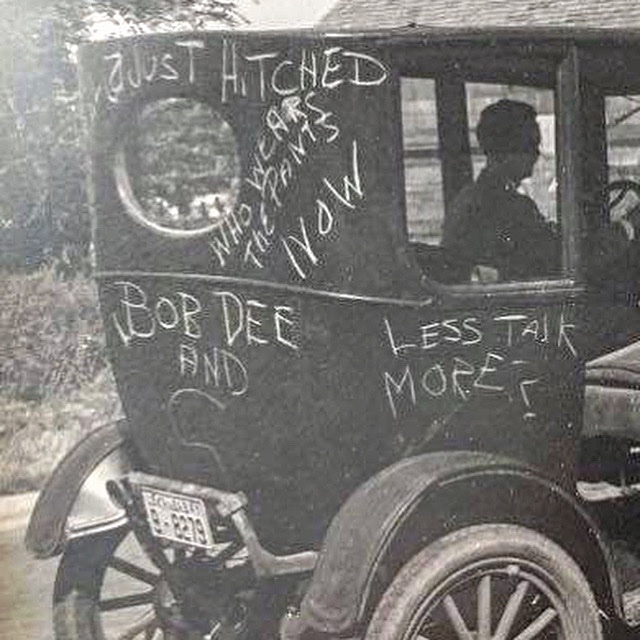 JUST HITCHED
WHO WEARS
THE PANTS
NOW
BOB DEE
AND
LESS TALK
MORE ?